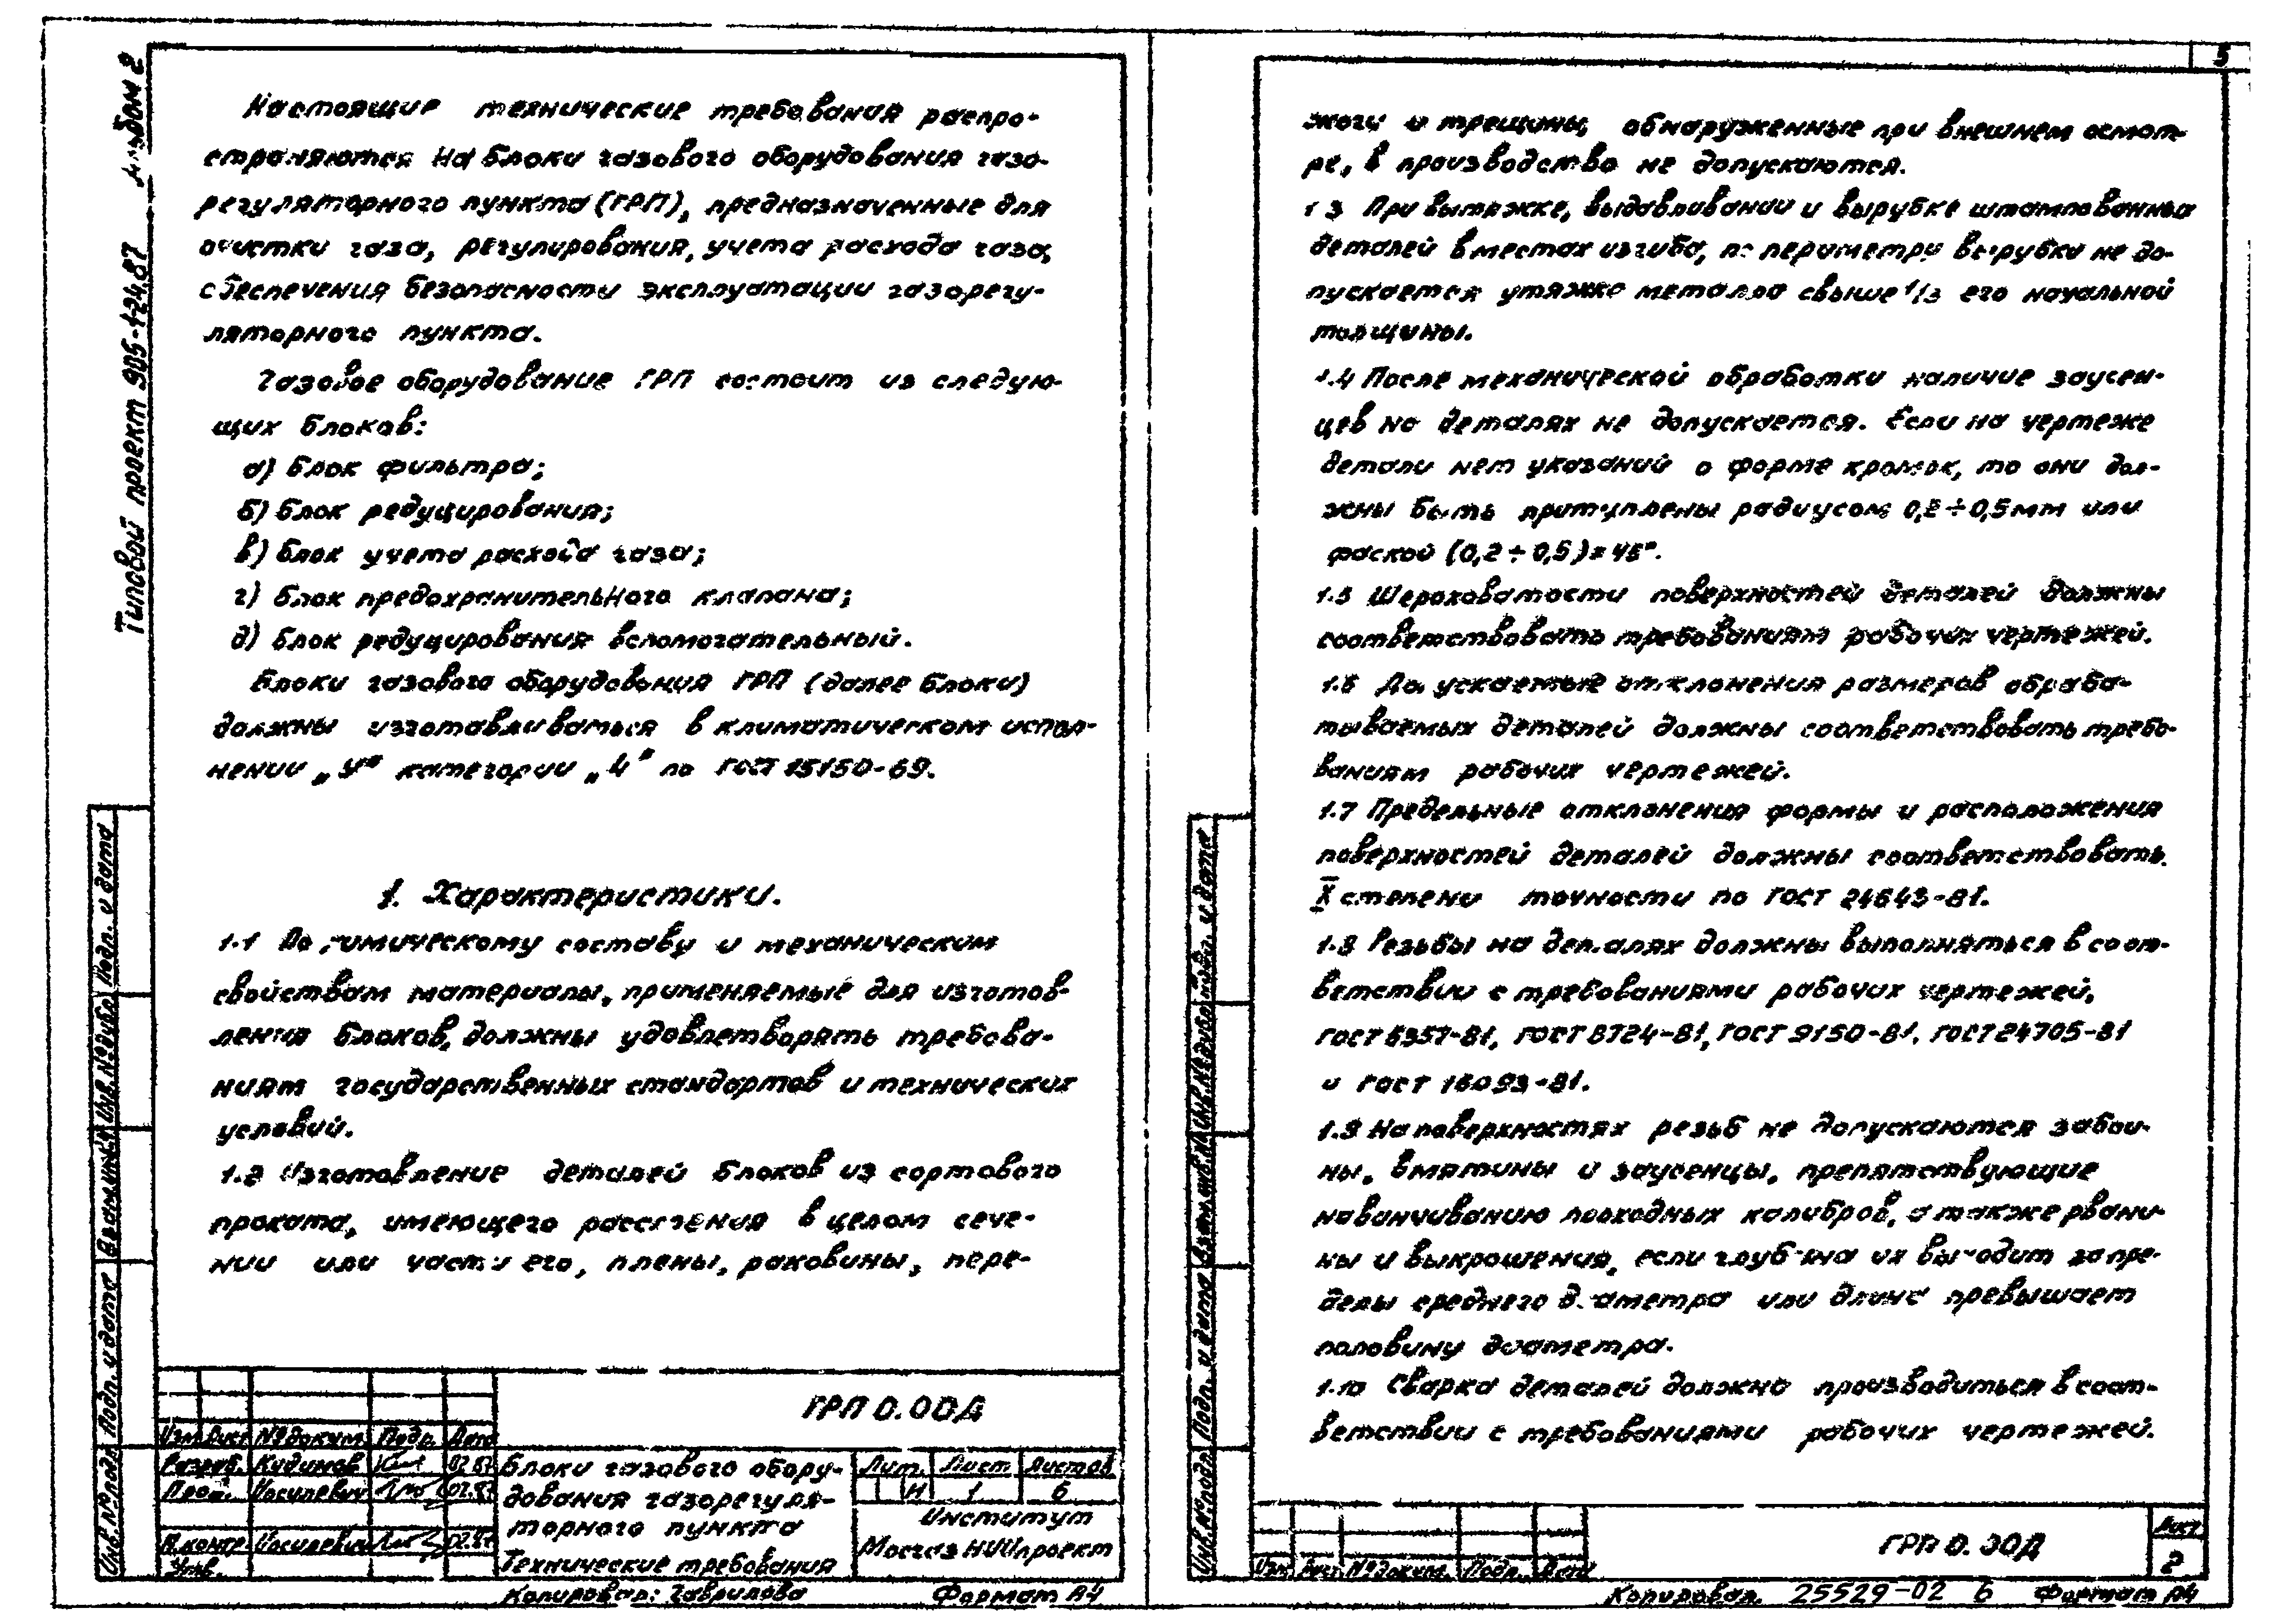 Типовой проект 905-1-24.87 Альбом 2
Настоящие технические требования распро-
страняются на блоки газового оборудования газо-
регуляторного пункта (ГРП), предназначенные для
очистки газа, регулирования, учета расхода газа,
обеспечения безопасности эксплуатации газорегу-
ляторного пункта.
Газовое оборудование ГРП состоит из следую-
щих блоков:
а) блок фильтра;
б) блок редуцирования;
в) блок учета расхода газа;
г) блок предохранительного клапана;
д) блок редуцирования вспомогательный.
Блоки газового оборудования ГРП (далее блоки)
должны изготавливаться в климатическом испол-
нении „У" категории „4" по ГОСТ 15150-69.
1. Характеристики.
1.1 По химическому составу и механическим
свойствам материалы, применяемые для изготов-
ления блоков, должны удовлетворять требова-
ниям государственных стандартов и технических
условий.
1.2 Изготовление деталей блоков из сортового
проката, имеющего расслоения в целом сече-
нии или части его, плены, раковины, пере-
Инв.№подл. Подп. и дата Взам.инв.№ Инв.№дубл. Подп. и дата
ГРП 0.00Д
Изм Лист №докум. Подп. Дата
Разраб. Кудинов 02.87
Пров. Иосилевич 02.87
Н.контр. Иосилевич 02.87
Утв.
Блоки газового обору-
дования газорегуля-
торного пункта
Технические требования
Лит. Лист Листов
И 1 6
Институт
МосгазНИИпроект
Копировал: Гаврилова Формат А4
5
жоги и трещины, обнаруженные при внешнем осмот-
ре, в производство не допускаются.
1.3 При вытяжке, выдавливании и вырубке штампованных
деталей в местах изгиба, по периметру вырубки не до-
пускается утяжка металла свыше 1/3 его начальной
толщины.
1.4 После механической обработки наличие заусен-
цев на деталях не допускается. Если на чертеже
детали нет указаний о форме кромок, то они дол-
жны быть притуплены радиусом 0,2÷0,5мм или
фаской (0,2÷0,5)×45°.
1.5 Шероховатости поверхностей деталей должны
соответствовать требованиям рабочих чертежей.
1.6 Допускаемые отклонения размеров обраба-
тываемых деталей должны соответствовать требо-
ваниям рабочих чертежей.
1.7 Предельные отклонения формы и расположения
поверхностей деталей должны соответствовать
X степени точности по ГОСТ 24643-81.
1.8 Резьбы на деталях должны выполняться в соот-
ветствии с требованиями рабочих чертежей,
ГОСТ 6357-81, ГОСТ 8724-81, ГОСТ 9150-81, ГОСТ 24705-81
и ГОСТ 16093-81.
1.9 На поверхностях резьб не допускаются забои-
ны, вмятины и заусенцы, препятствующие
навинчиванию проходных калибров, а также рвани-
ны и выкрошения, если глубина их выходит за пре-
делы среднего диаметра или длина превышает
половину диаметра.
1.10 Сварка деталей должна производиться в соот-
ветствии с требованиями рабочих чертежей.
Инв.№подл. Подп. и дата Взам.инв.№ Инв.№дубл. Подп. и дата
Изм Лист №докум. Подп. Дата
ГРП 0.00Д
Лист
2
Копировал. 25529-02 6 Формат А4